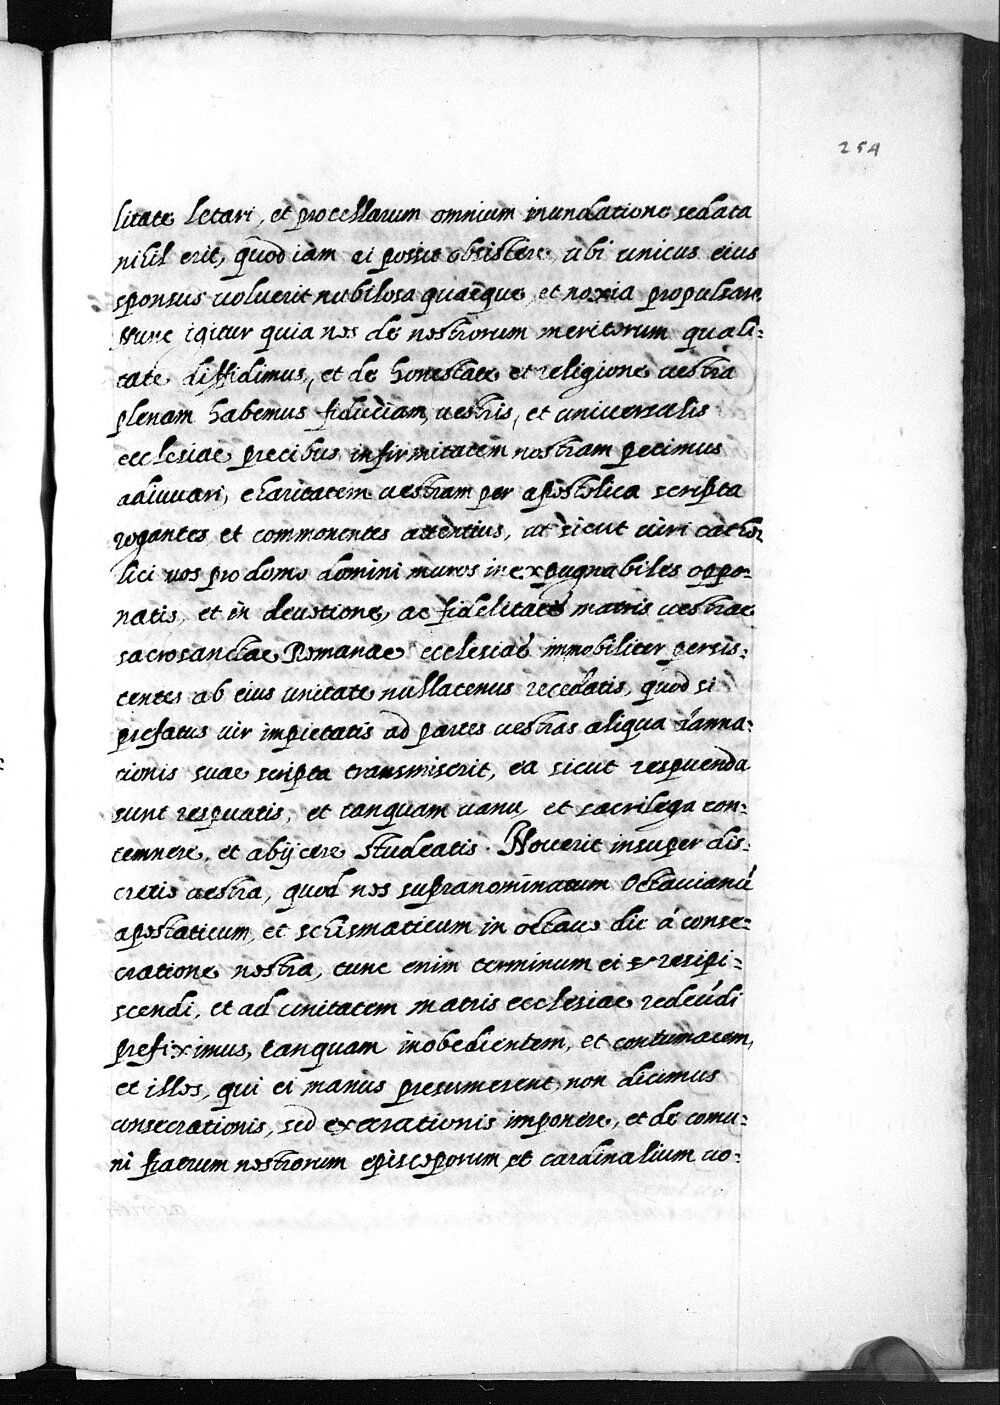 254
litate letari, et procellarum omnium inundatione sedata
nihil erit, quod iam ei possit obsistere, ubi unicus eius
sponsus uoluerit nubilosa quaeque, et noxia propulsare
Nunc igitur quia nos de nostrorum meritorum quali:
tate diffidimus, et de honestate et religione uestra
plenam habemus fiduciam, uestris, et uniuersalis
ecclesiae precibus infirmitatem nostram petimus
adiuuari, charitatem uestram per apostolica scripta
rogantes et commonentes attentius, ut sicut uiri catho:
lici uos pro domo domini muros inexpugnabiles oppo:
natis, et in deuotione, ac fidelitate matris uestrae
sacrosanctae Romanae ecclesiae immobiliter persis:
tentes ab eius unitate nullatenus recedatis, quod si
prefatus uir impietatis ad partes uestras aliqua damna:
tionis suae scripta transmiserit, ea sicut respuenda
sunt respuatis, et tanquam uana et sacrilega con:
temnere, et abijcere studeatis. Nouerit insuper dis:
cretio uestra, quod nos supranominatum Octauianū
apostaticum, et schismaticum in octauo die á conse:
cratione nostra, tunc enim terminum ei resipi:
scendi, et ad unitatem matris ecclesiae redeūdi
prefiximus, tanquam inobedientem, et contumacem,
et illos, qui ei manus presumerent, non dicimus
consecrationis, sed execrationis imponere, et de comu:
ni fratrum nostrorum episcoporum et cardinalium uo: